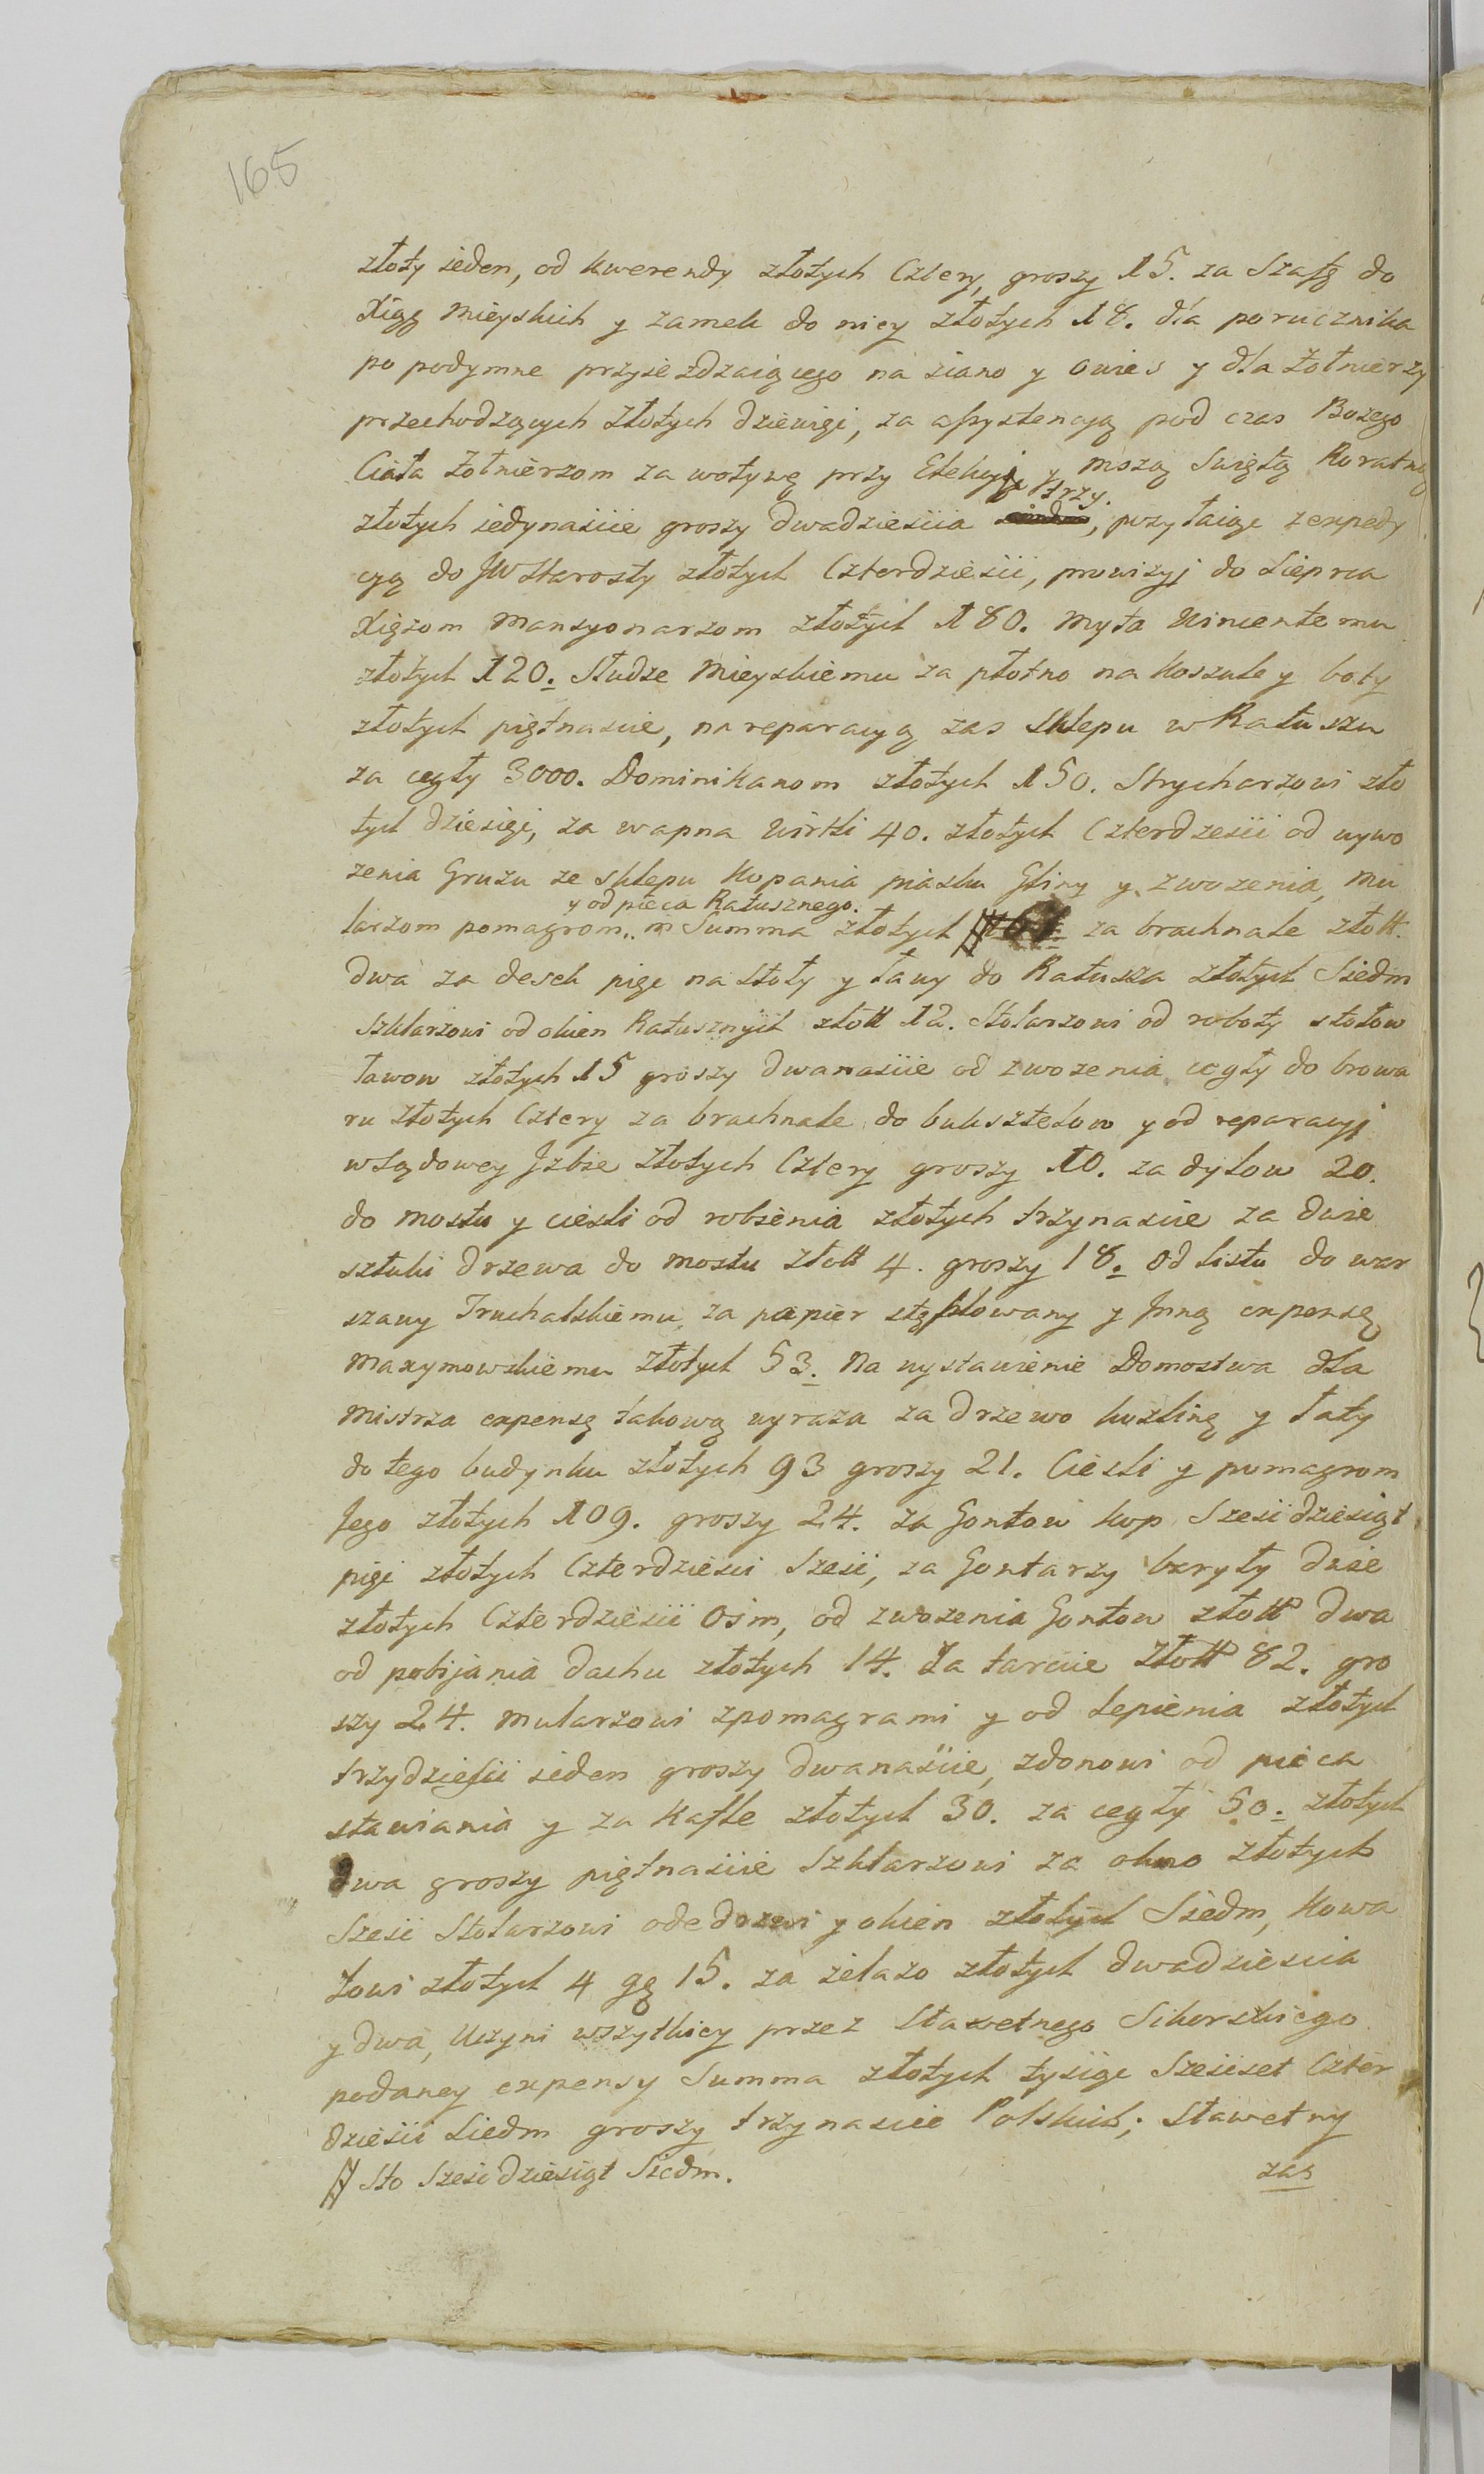 165
złoty ieden, od kwerendy złotych Cztery, groszy 15. za Szafę do
Xiąg Mieyskich y zamek do nicy złotych 18. dla porucznika
po podymne przyieżdzaiącego na siano y owies y dla Żołnierzy
przechodzących złotych dziewięć, za assystencyą pod czas Bozego
Ciała Żołnierzom za wotywę przy Elekcyi y mszą Swiętą Roratną
trzy.
złotych iedynascie groszy dwadziescia, pozytaiąc zexpedy
cyą do JW Starosty złotych Czterdziescii, prowizyj do Sieprca
Xiężom Mansyonarzom złotych 180. Myta Wincentemu
złotych 120. Słudze Mieyskiemu za płotno na koszule y boty
złotych piętnascie, na reparacyą zas Sklepu w Ratuszu
za cegły 3000. Dominikanom złotych 150. Strycharzowi zło
tych dziesięć, za wapna Wirtli 40. złotych Czterdzescii od wywo
zenia Gruzu ze sklepu kopania piasku Gliny y zwozenia, Mu
y od pieca Ratusznego.
larzom pomagrom,, in Summa złotych # za brachnale złott.
dwa za desek pięc na stoły y ławy do Ratusza złotych Siedm
Szklarzowi od okien Ratusznych złott 12. Stolarzowi od roboty stołow
ławow złotych 15 groszy dwanascie od zwozenia cegły do browa
ru złotych Cztery za brachnale do buksztelow y od reparacyj
w Sądowey Jzbie złotych Cztery groszy 10. za dylow 20.
do mostu y ciesli od robienia złotych trzynascie za dwie
sztuki drzewa do mostu złott 4. groszy 18. Od listu do war
szawy Truchalskiemu za papier stęplowany y Jnną expensę
Maxymowskiemu złotych 53. Na wystawienie Domostwa dla
Mistrza expensę takową wyraza za drzewo kozlinę y łaty
do tego budynku złotych 93 groszy 21. Ciesli y pomagrom
Jego złotych 109. groszy 24. za Gontow kop Szescidziesiąt
pięc złotych Czterdziesci Szesc, za Gontarzy bryty dwie
złotych Czterdziescii Osm, od zwozenia Gontow złott dwa
od pobijania dachu złotych 14. Za tarcice złott 82. gro
szy 24. Mularzowi zpomagrami y od lepienia złotych
trzydziescii ieden groszy dwanascie, zdonowi od pieca
stawiania y za Kafle złotych 30. za cegły 50. złotych
dwa groszy piętnascie Szklarzowi za okno złotych
Szesc Stolarzowi ode drzwi y okien złotych Siedm, kowa
lowi złotych 4 gę 15. za zelazo złotych dwadziescia
y dwa, Uczyni wszytkiey przez Sławetnego Sikorskiego
podaney expensy Summa złotych tysiąc Szescset Czter
dziescii Siedm groszy trzynascie Polskich; Sławetny
# Sto Szescidziesiąt Siedm.
zas